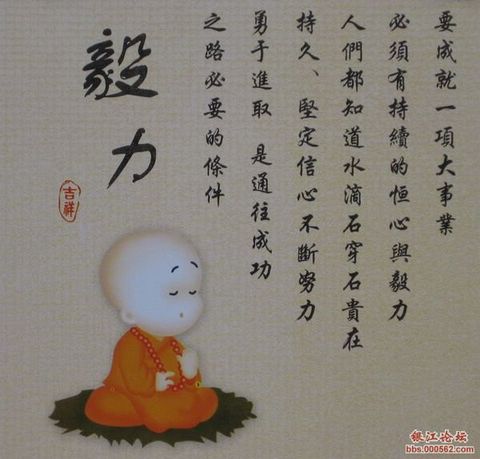 要成就一項大事業
必須有持續的恒心與毅力
人們都知道水滴石穿石貴在
持久、堅定信心不斷努力
勇于進取 是通往成功
之路必要的條件
毅力
吉祥
银江论坛
bbs.000562.com